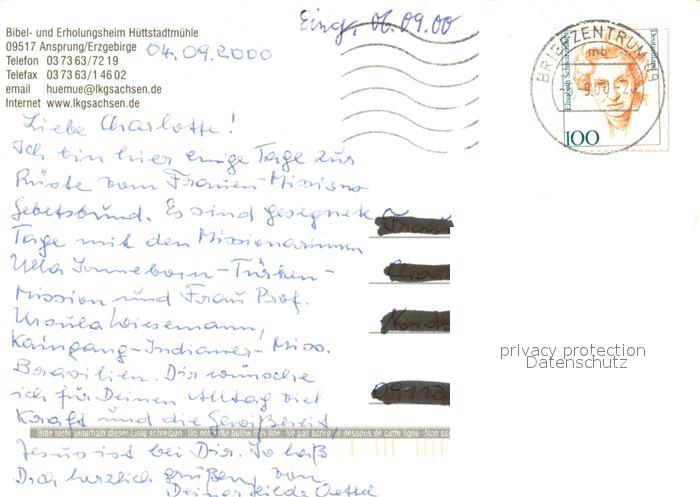 Bibel- und Erholungsheim Hüttstadtmühle
09517 Ansprung/Erzgebirge
Telefon 0 37 3 63 / 72 19
Telefax 0 37 3 63 / 1 46 02
email huemue@lkgsachsen.de
Internet www.lkgsachsen.de
04.09.2000
Eing. 06.09.00
BRIEFZENTRUM 09
mb
Deutschland
100
Liebe Charlotte!
Ich bin hier einige Tage zur
Rüste vom Frauen-Missions-
Gebetsbund. Es sind gesegnete
Tage mit den Missionarinnen
Ulla Sonneborn-Türken-
Mission und Frau Prof.
Ursula Wiesemann,
Kaingang-Indianer-Miss.
Brasilien. Dir wünsche
ich für Deinen Alltag viel
Kraft und die Gewißheit,
Bitte nicht unterhalb dieser Linie schreiben Do not write below this line Ne pas écrire au dessous de cette ligne Non sc
Jesus ist bei Dir. So laß
Dich herzlich grüßen von
Deiner Hilde
privacy protection
Datenschutz